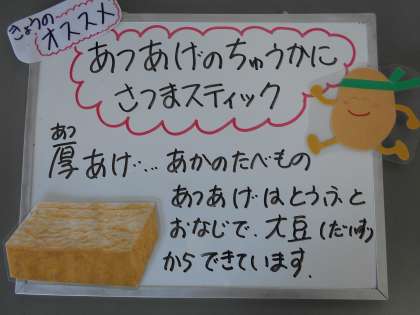 きょうの
オススメ
あつあげのちゅうかに
さつまスティック
あつ
厚あげ…あかのたべもの
あつあげはとうふと
おなじで、大豆(だいず)
からできています。